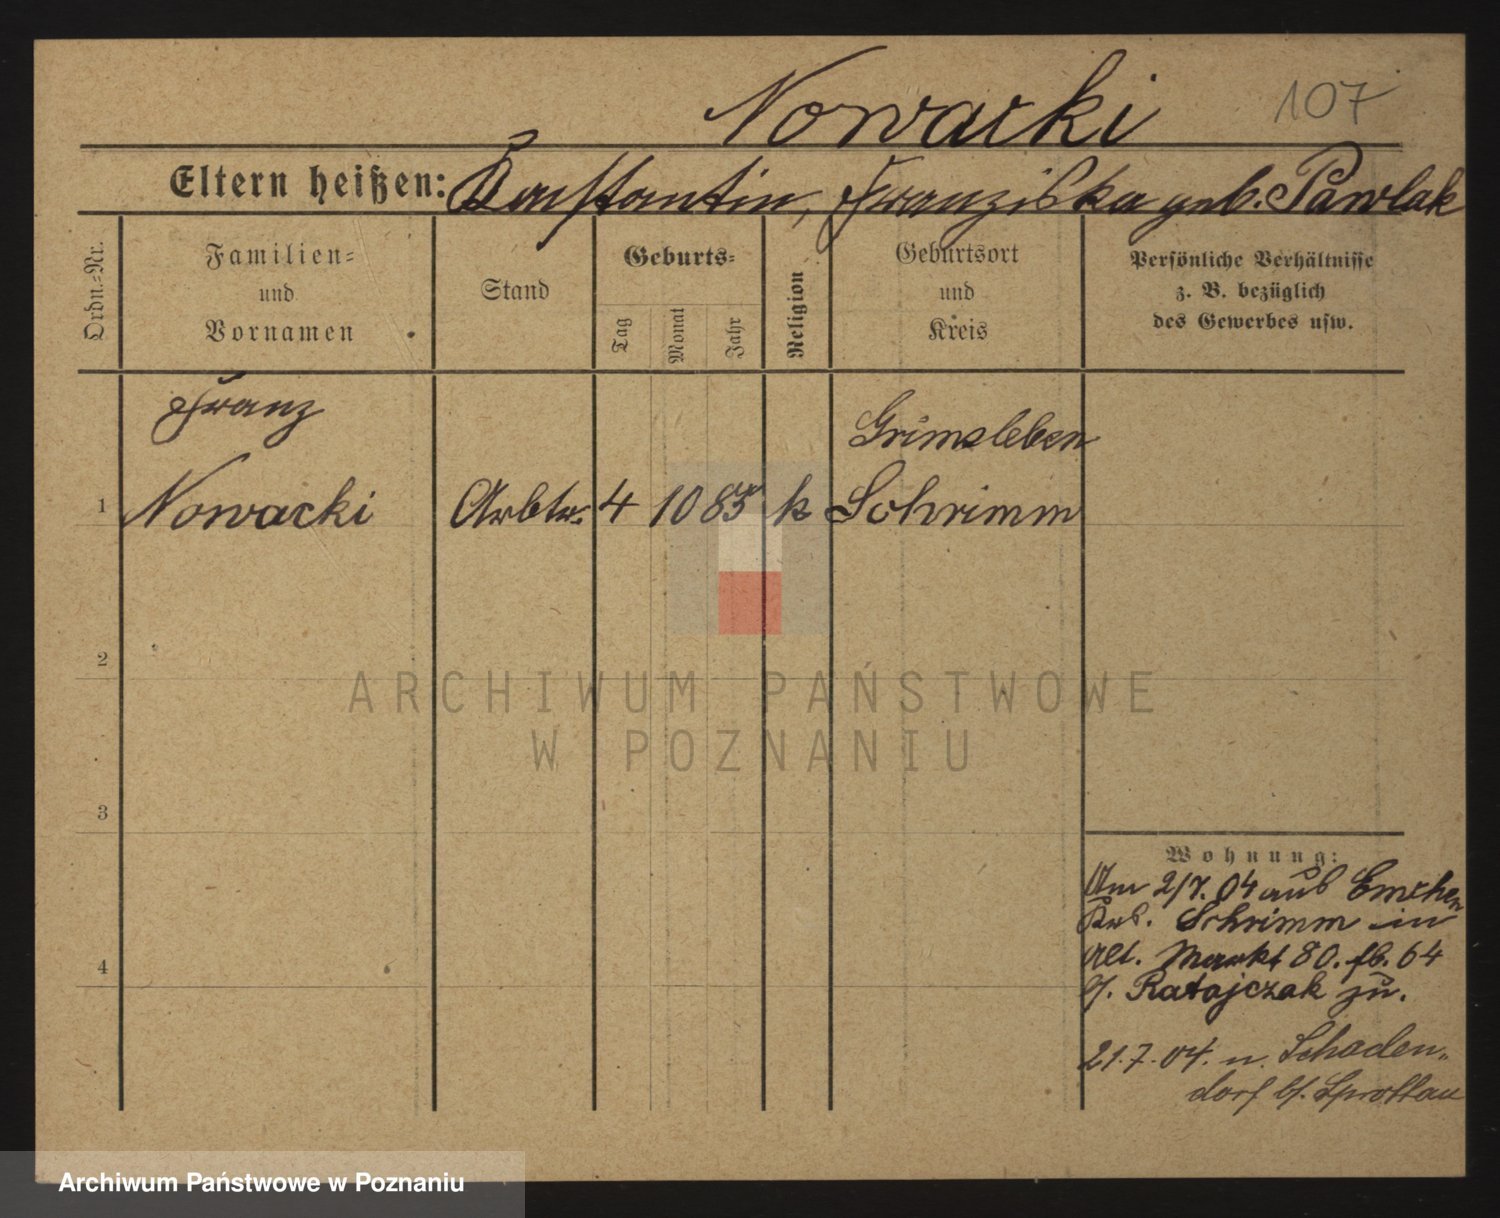 Nowacki 107
Eltern heißen: Konstantin, Franziska geb. Pawlak
Ordn.-Nr.
Familien-
und
Vornamen
Stand
Geburts-
Tag
Monat
Jahr
Religion
Geburtsort
und
Kreis
Persönliche Verhältnisse
z. B. bezüglich
des Gewerbes usw.
Franz
Grimsleben
1 Nowacki Arbtr. 4 10 85 k Schrimm
2
3
4
Wohnung:
Am 2/7. 04 aus Emchen
Krs. Schrimm in
Alt. Markt 80. 64
b/. Ratajczak zu.
21.7.04. n. Schaden-
dorf b/. Sprottau
ARCHIWUM PAŃSTWOWE
W POZNANIU
Archiwum Państwowe w Poznaniu